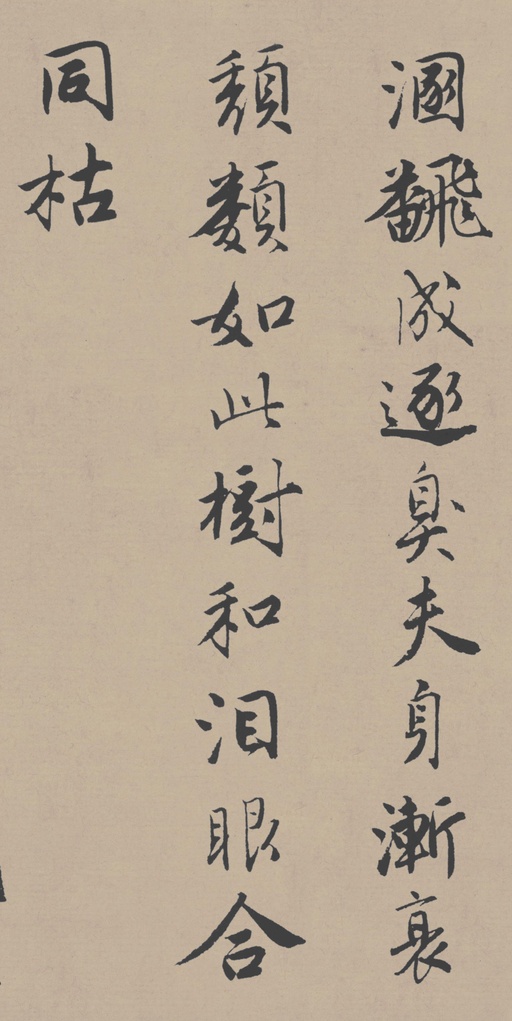 溷飜成逐臭夫身漸衰
頽類如此樹和泪眼合
同枯